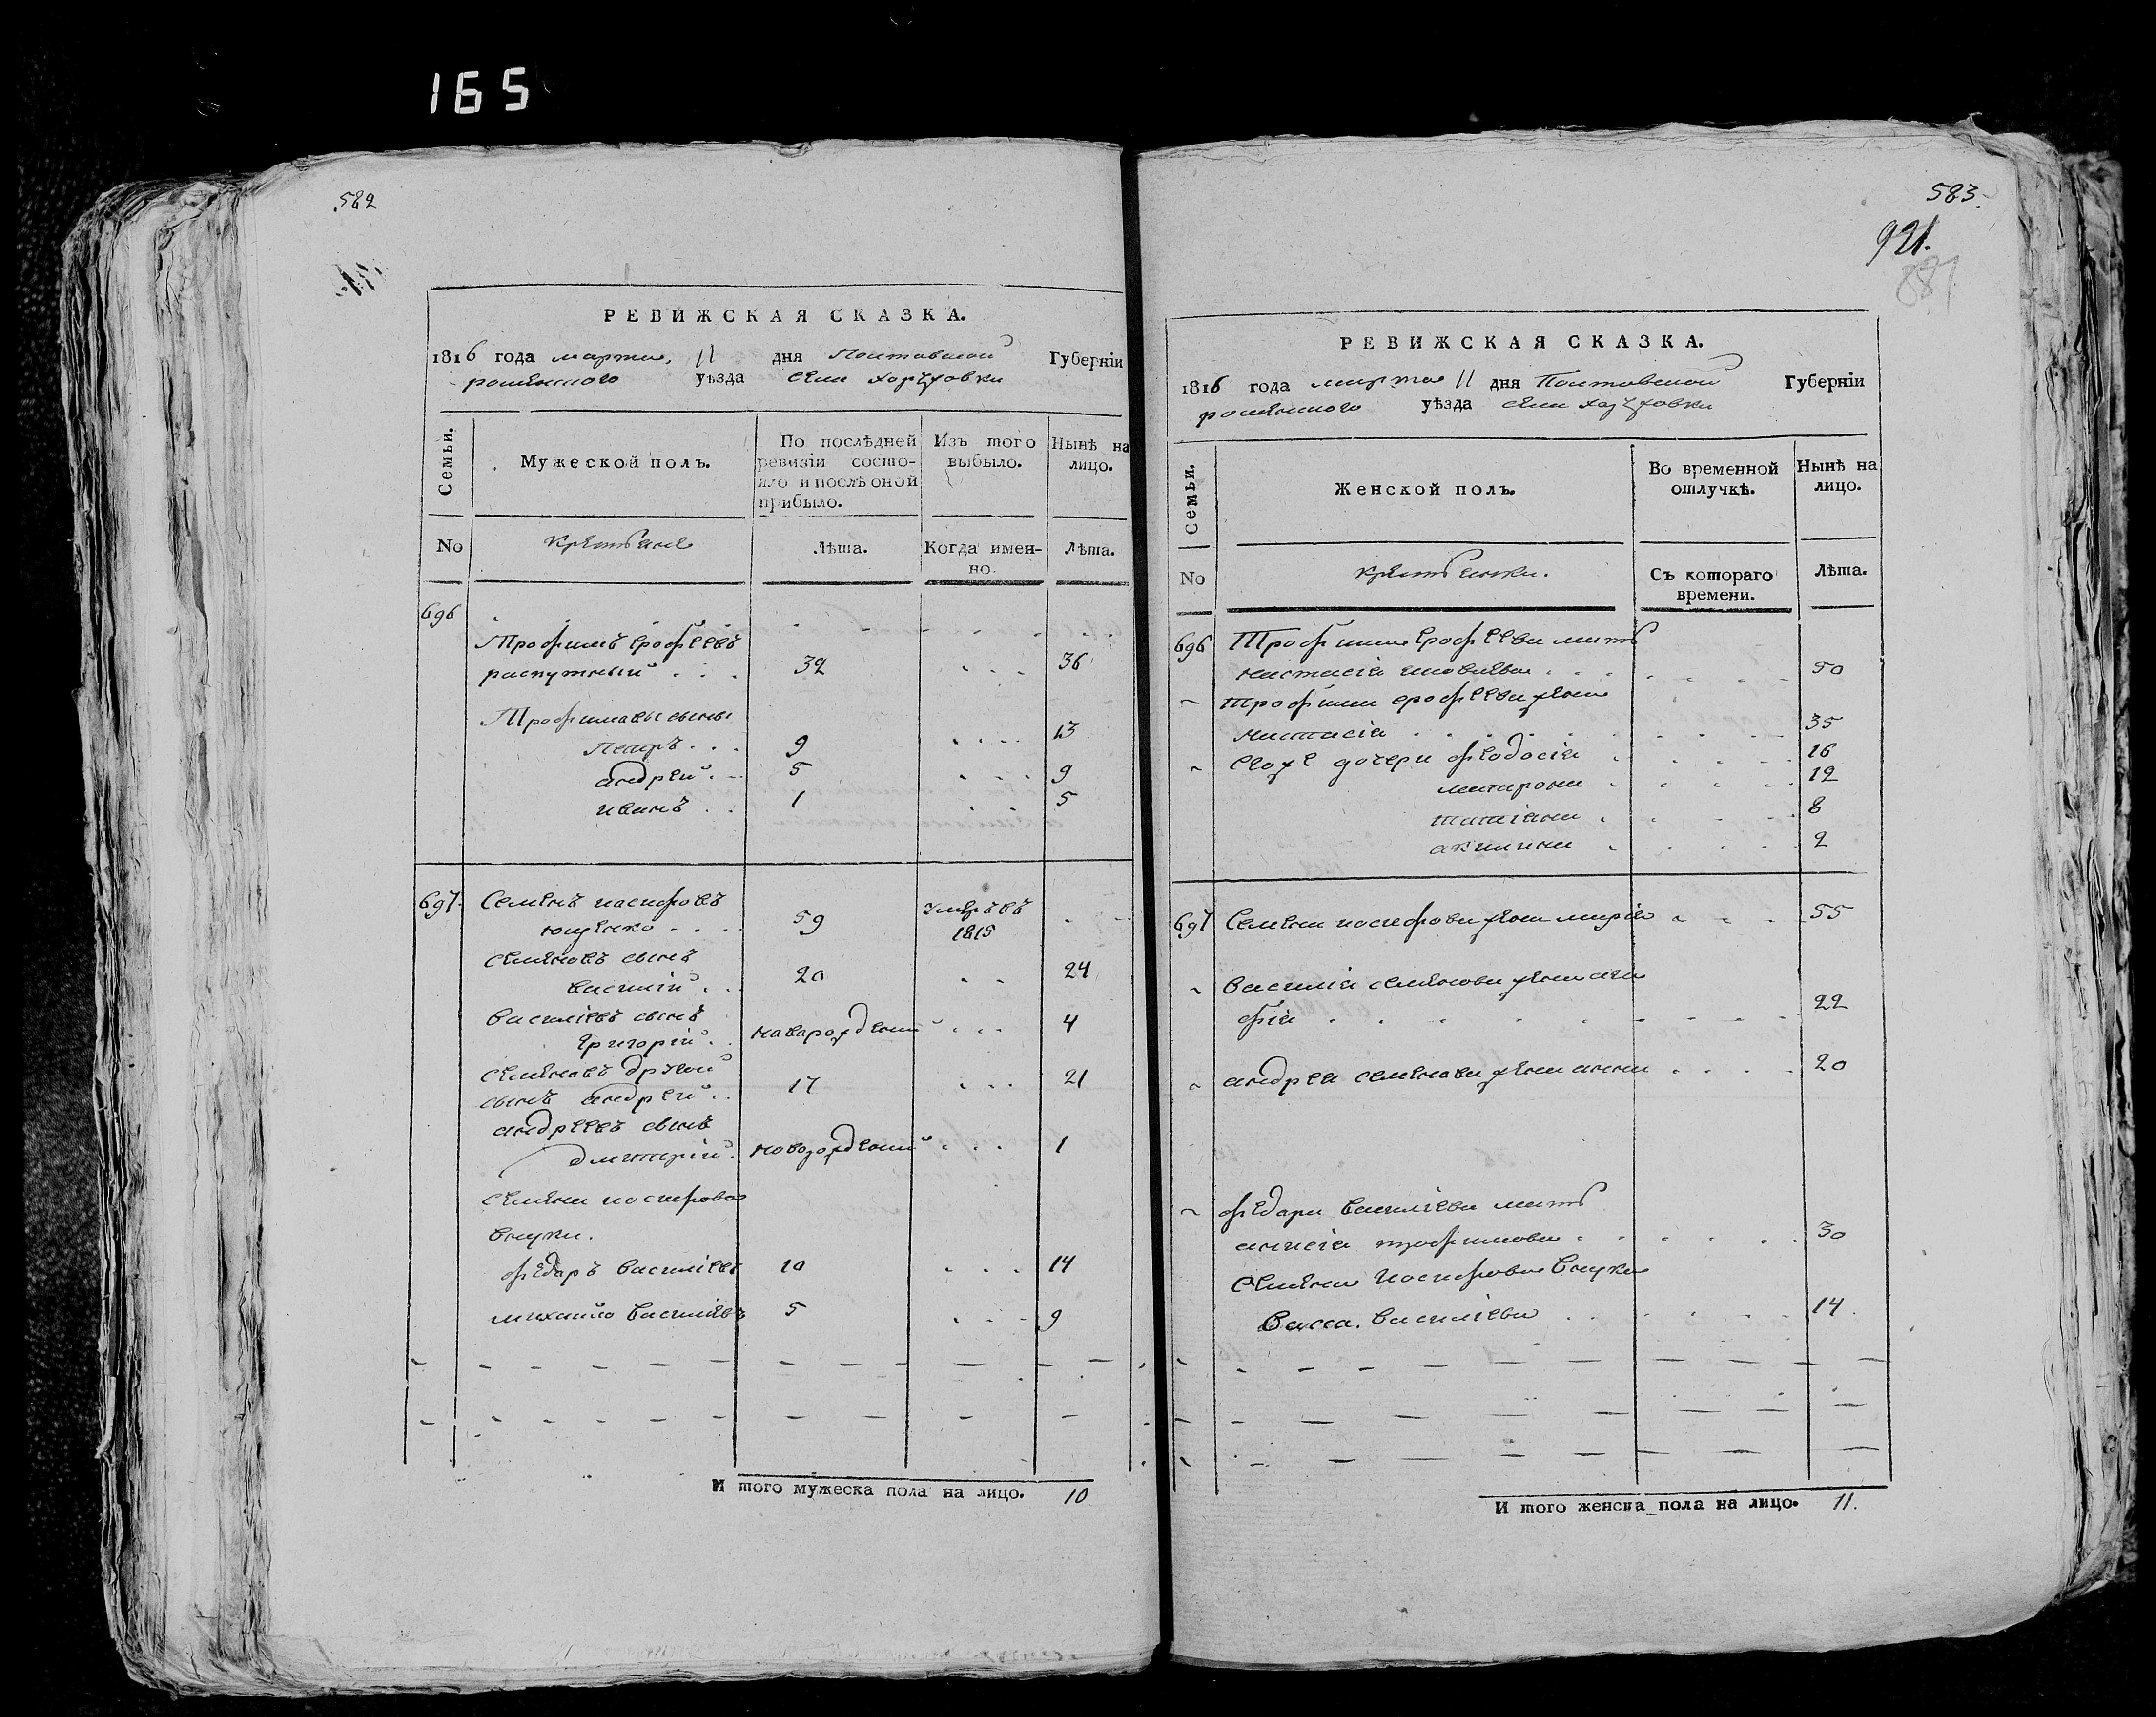 165
582
РЕВИЖСКАЯ СКАЗКА.
1816 года марта 11 дня Полтавской Губернiи
роменского уѣзда села хоружовки
Семьи.
Мужеской полъ.
По послѣдней ревизiи состояло и послѣ оной прибыло.
Изъ того выбыло.
Нынѣ на лицо.
No
крестьяне
Лѣта.
Когда именно.
Лѣта.
696
Трофимъ ерофеевъ
распутный . . . 32 . . . 36
Трофимавы сыны
Петръ . . . 9 . . . 13
андрей . . 5 . . . 9
иванъ . . 1 . . 5
697. Семенъ иосифовъ
ющенко . . . 59 умре въ 1815
семеновъ сынъ
василiй . . 20 . . 24
василiевъ сынъ
григорiй . . новарожденый . . . 4
семеновъ другой
сынъ андрей . . 17 . . . 21
андреевъ сынъ
дмитрiй . новорожденый . . . 1
семена иосифова
внуки.
федаръ василiевъ 10 . . . 14
михайло василiевъ 5 . . . 9
И того мужеска пола на лицо. 10
583.
921.
881
РЕВИЖСКАЯ СКАЗКА.
1816 года марта 11 дня Полтавской Губернiи
роменского уѣзда села хоружовки
Семьи.
Женской полъ.
Во временной отлучкѣ.
Нынѣ на лицо.
No
крестьянки.
Съ котораго времени.
Лѣта.
696 Трофима ерофеева мать
настасiя . . . 50
трофима ерофеева жена
настасiя . . . 35
егоже дочери феодосiя . . . 16
матрона . . . 12
татiана . . . 8
акилина . . . 2
697 Семена иосифова жена марiя . . . 55
василiя семенова жена ага
фiя . . . 22
андрея семенова жена анна . . . 20
федара василiева мать
анисiя трофимова . . . 30
Семена иосифова внука
васса василiева . . . 14.
И того женска пола на лицо. 11.